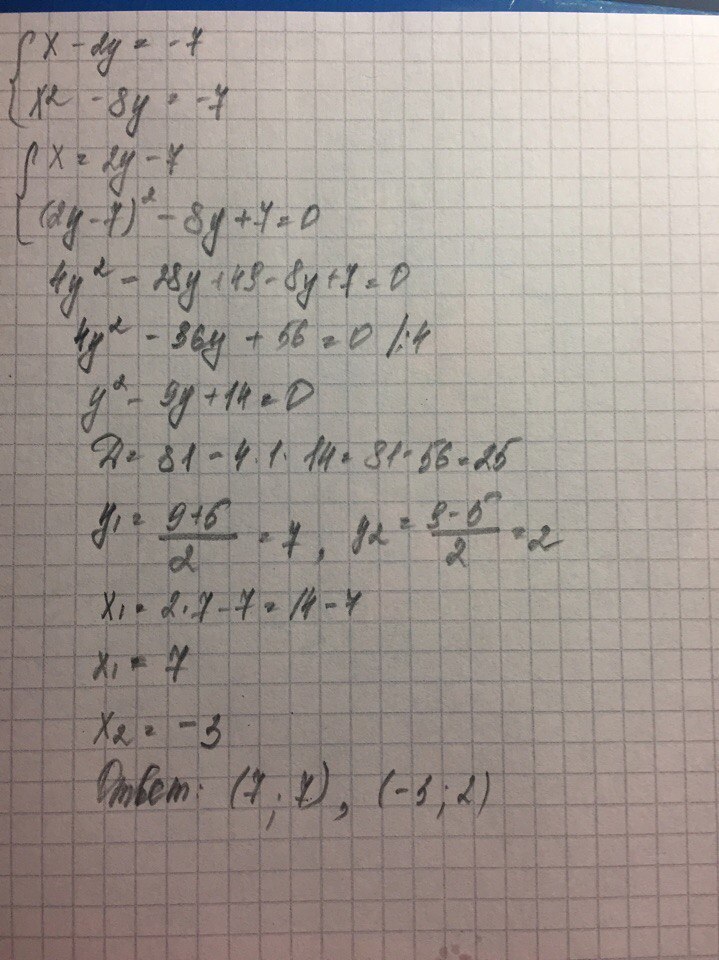 x - 2y = -7
x² - 8y = -7
x = 2y - 7
(2y - 7)² - 8y + 7 = 0
4y² - 28y + 49 - 8y + 7 = 0
4y² - 36y + 56 = 0 /:4
y² - 9y + 14 = 0
Д = 81 - 4·1·14 = 81 - 56 = 25
y₁ = (9+5)/2 = 7, y₂ = (9-5)/2 = 2
x₁ = 2·7 - 7 = 14 - 7
x₁ = 7
x₂ = -3
Ответ: (7; 7), (-3; 2)